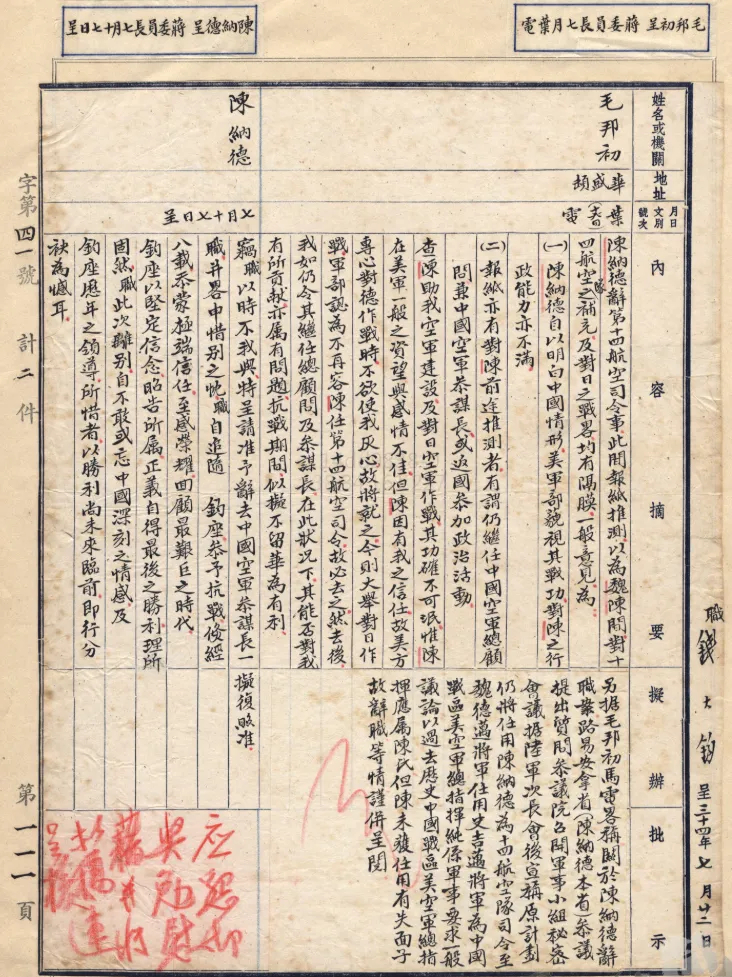 毛邦初呈 蔣委員長七月葉電
陳納德呈 蔣委員長七月十七日呈
職 錢大鈞 呈三十四年七月廿二日
姓名或機關
地址
月日
文別
號次
內容摘要
擬辦
批示
毛邦初
華盛頓
葉電
陳納德辭第十四航空司令事此間報紙推測以為魏陳間對十
四航空隊之補充及對日之戰畧均有隔膜一般意見為
(一)陳納德自以明白中國情形美軍部藐視其戰功對陳之行
政能力亦不滿
(二)報紙亦有對陳前途推測者有謂仍繼任中國空軍總顧
問兼中國空軍參謀長或返國參加政治活動
查陳助我空軍建設及對日空軍作戰其功確不可泯惟陳
在美軍一般之資望與感情不佳但陳因有我之信任故美方
專心對德作戰時不欲使我灰心故將就之今則大舉對日作
戰軍部認為不再容陳任第十四航空司令故必去之然去後
我如仍令其繼任總顧問及參謀長在此狀況下其能否對我
有所貢獻亦屬有問題抗戰期間似擬不留華為有利
另據毛邦初馬電畧稱關於陳納德辭
職業路易安拿省(陳納德本省)參議
提出質問參議院乃開軍事小組秘密
會議據陸軍次長會後宣稱原計劃
仍將任用陳納德為十四航空隊司令至
魏德邁將軍任用史吉邁將軍為中國
戰區美空軍總指揮純係軍事要求一般
議論以過去歷史中國戰區美空軍總指
揮應屬陳氏但陳未獲任用有失面子
故辭職等情謹併呈閱
陳納德
七月十七日呈
竊職以時不我與特呈請准予辭去中國空軍參謀長一
職并畧申惜別之忱職自追隨 鈞座參予抗戰倏經
八載忝蒙極端信任至感榮耀回顧最艱巨之時代
鈞座以堅定信念昭告所屬正義自得最後之勝利理所
固然職此次離別自不敢或忘中國深刻之情感及
鈞座歷年之領導所惜者以勝利尚未來臨前即行分
袂為憾耳
擬復照准
字第四一號 計二件
第一一一頁